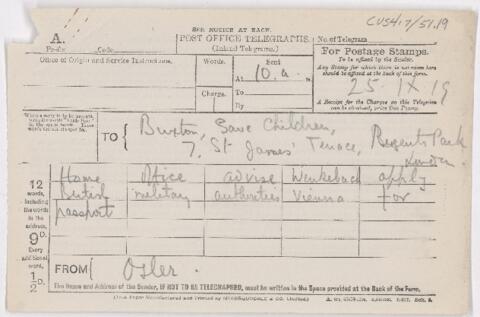 CUS417/51.19
SEE NOTICE AT BACK.
A.
POST OFFICE TELEGRAPHS.
(Inland Telegrams.)
No. of Telegram
Prefix Code
Office of Origin and Service Instructions.
Words.
Sent
At 10.a. M.
Charge.
To
By
For Postage Stamps.
To be affixed by the Sender.
Any Stamp for which there is not room here
should be affixed at the back of this form.
25.IX.19
A Receipt for the Charges on this Telegram
can be obtained, price One Penny.
TO
Buxton, Save Children,
7, St James' Terrace, Regents Park
London
12
words,
including
the words
in the
address,
9D.
Every
additional
word,
½D.
Home Office advise Wenkebach apply
British military authorities Vienna for
passport
FROM
Osler.
The Name and Address of the Sender, IF NOT TO BE TELEGRAPHED, must be written in the Space provided at the Back of the Form.